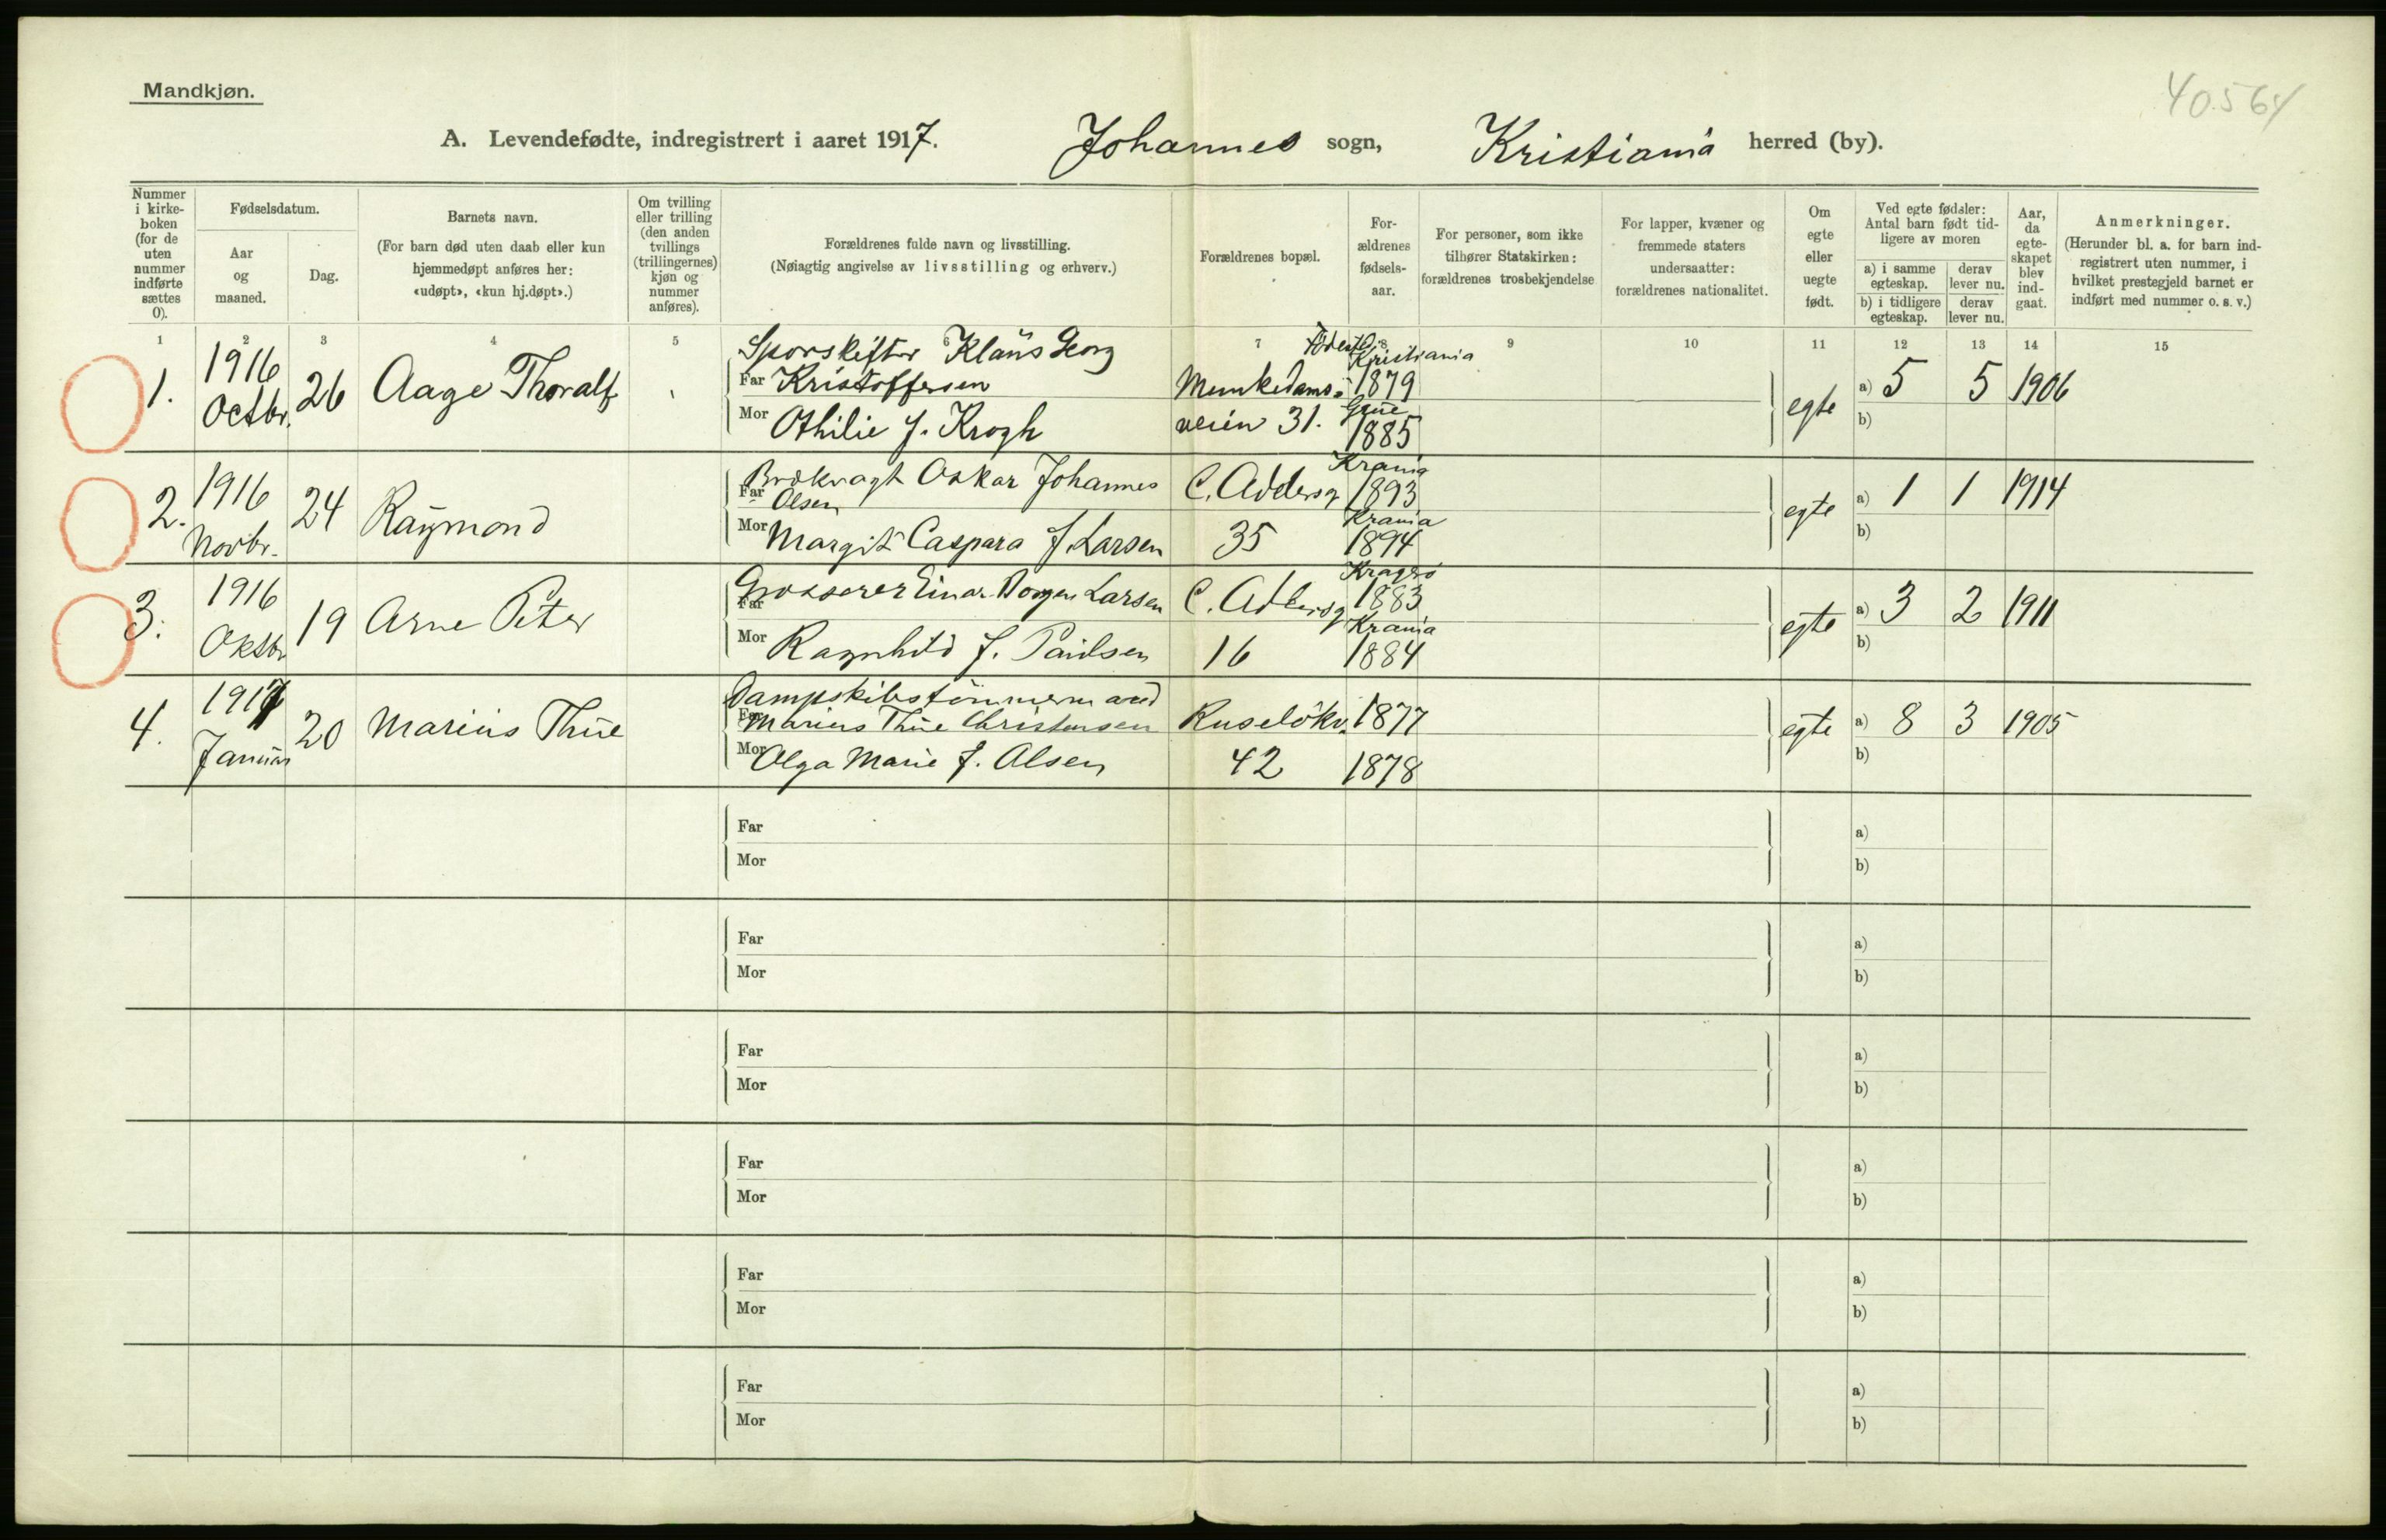 Mandkjøn.
40564
A. Levendefødte, indregistrert i aaret 1917. Johannes sogn, Kristiania herred (by).
Nummer i kirke-boken (for de uten nummer indførte sættes 0).
Fødselsdatum.
Aar og maaned.
Dag.
Barnets navn.
(For barn død uten daab eller kun hjemmedøpt anføres her: «udøpt», «kun hj.døpt».)
Om tvilling eller trilling (den anden tvillings (trillingernes) kjøn og nummer anføres).
Forældrenes fulde navn og livsstilling.
(Nøiagtig angivelse av livsstilling og erhverv.)
Forældrenes bopæl.
For-ældrenes fødsels-aar.
For personer, som ikke tilhører Statskirken: forældrenes trosbekjendelse
For lapper, kvæner og fremmede staters undersaatter: forældrenes nationalitet.
Om egte eller uegte født.
Ved egte fødsler: Antal barn født tid-ligere av moren
a) i samme egteskap.
derav lever nu.
b) i tidligere egteskap.
derav lever nu.
Aar, da egte-skapet blev ind-gaat.
Anmerkninger.
(Herunder bl. a. for barn ind-registrert uten nummer, i hvilket prestegjeld barnet er indført med nummer o. s. v.)
1 2 3 4 5 6 7 8 9 10 11 12 13 14 15
Fødested:
1. 1916 Octbr. 26 Aage Thoralf
Sporskifter Klaus Georg
Far Kristoffersen Munkedams- Kristiania 1879
Mor Othilie f. Krogh veien 31. Grue 1885
egte a) 5 5 1906
b)
2. 1916 Novbr. 24 Raymond
Brokvagt Oskar Johannes
Far Olsen C. Addersg Krania 1893
Mor Margit Caspara f. Larsen 35 Krania 1894
egte a) 1 1 1914
b)
3. 1916 Oktbr 19 Arne Peter
Far Grosserer Einar Borgen Larsen C. Adlersg Kragerö 1883
Mor Ragnhild f. Paulsen 16 Krania 1884
egte a) 3 2 1911
b)
4. 1917 Januar 20 Marius Thue
Dampskibstömmermand
Far Marius Thue Christensen Ruselökv. 1877
Mor Olga Marie f. Olsen 42 1878
egte a) 8 3 1905
b)
Far a)
Mor b)
Far a)
Mor b)
Far a)
Mor b)
Far a)
Mor b)
Far a)
Mor b)
Far a)
Mor b)